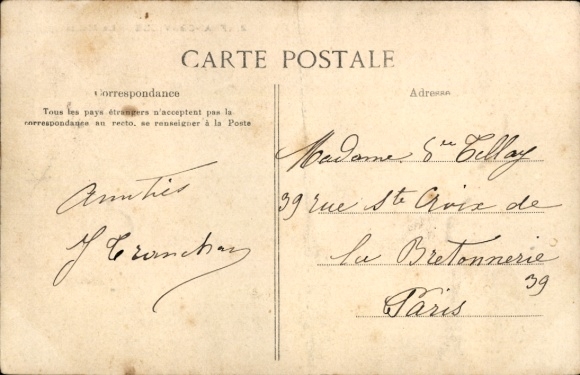 CARTE POSTALE
Correspondance
Tous les pays étrangers n'acceptent pas la
correspondance au recto, se renseigner à la Poste
Amitiés
J Tranchan
Adresse
Madame Vve Tellay
39 rue Ste Croix de
la Bretonnerie
39
Paris